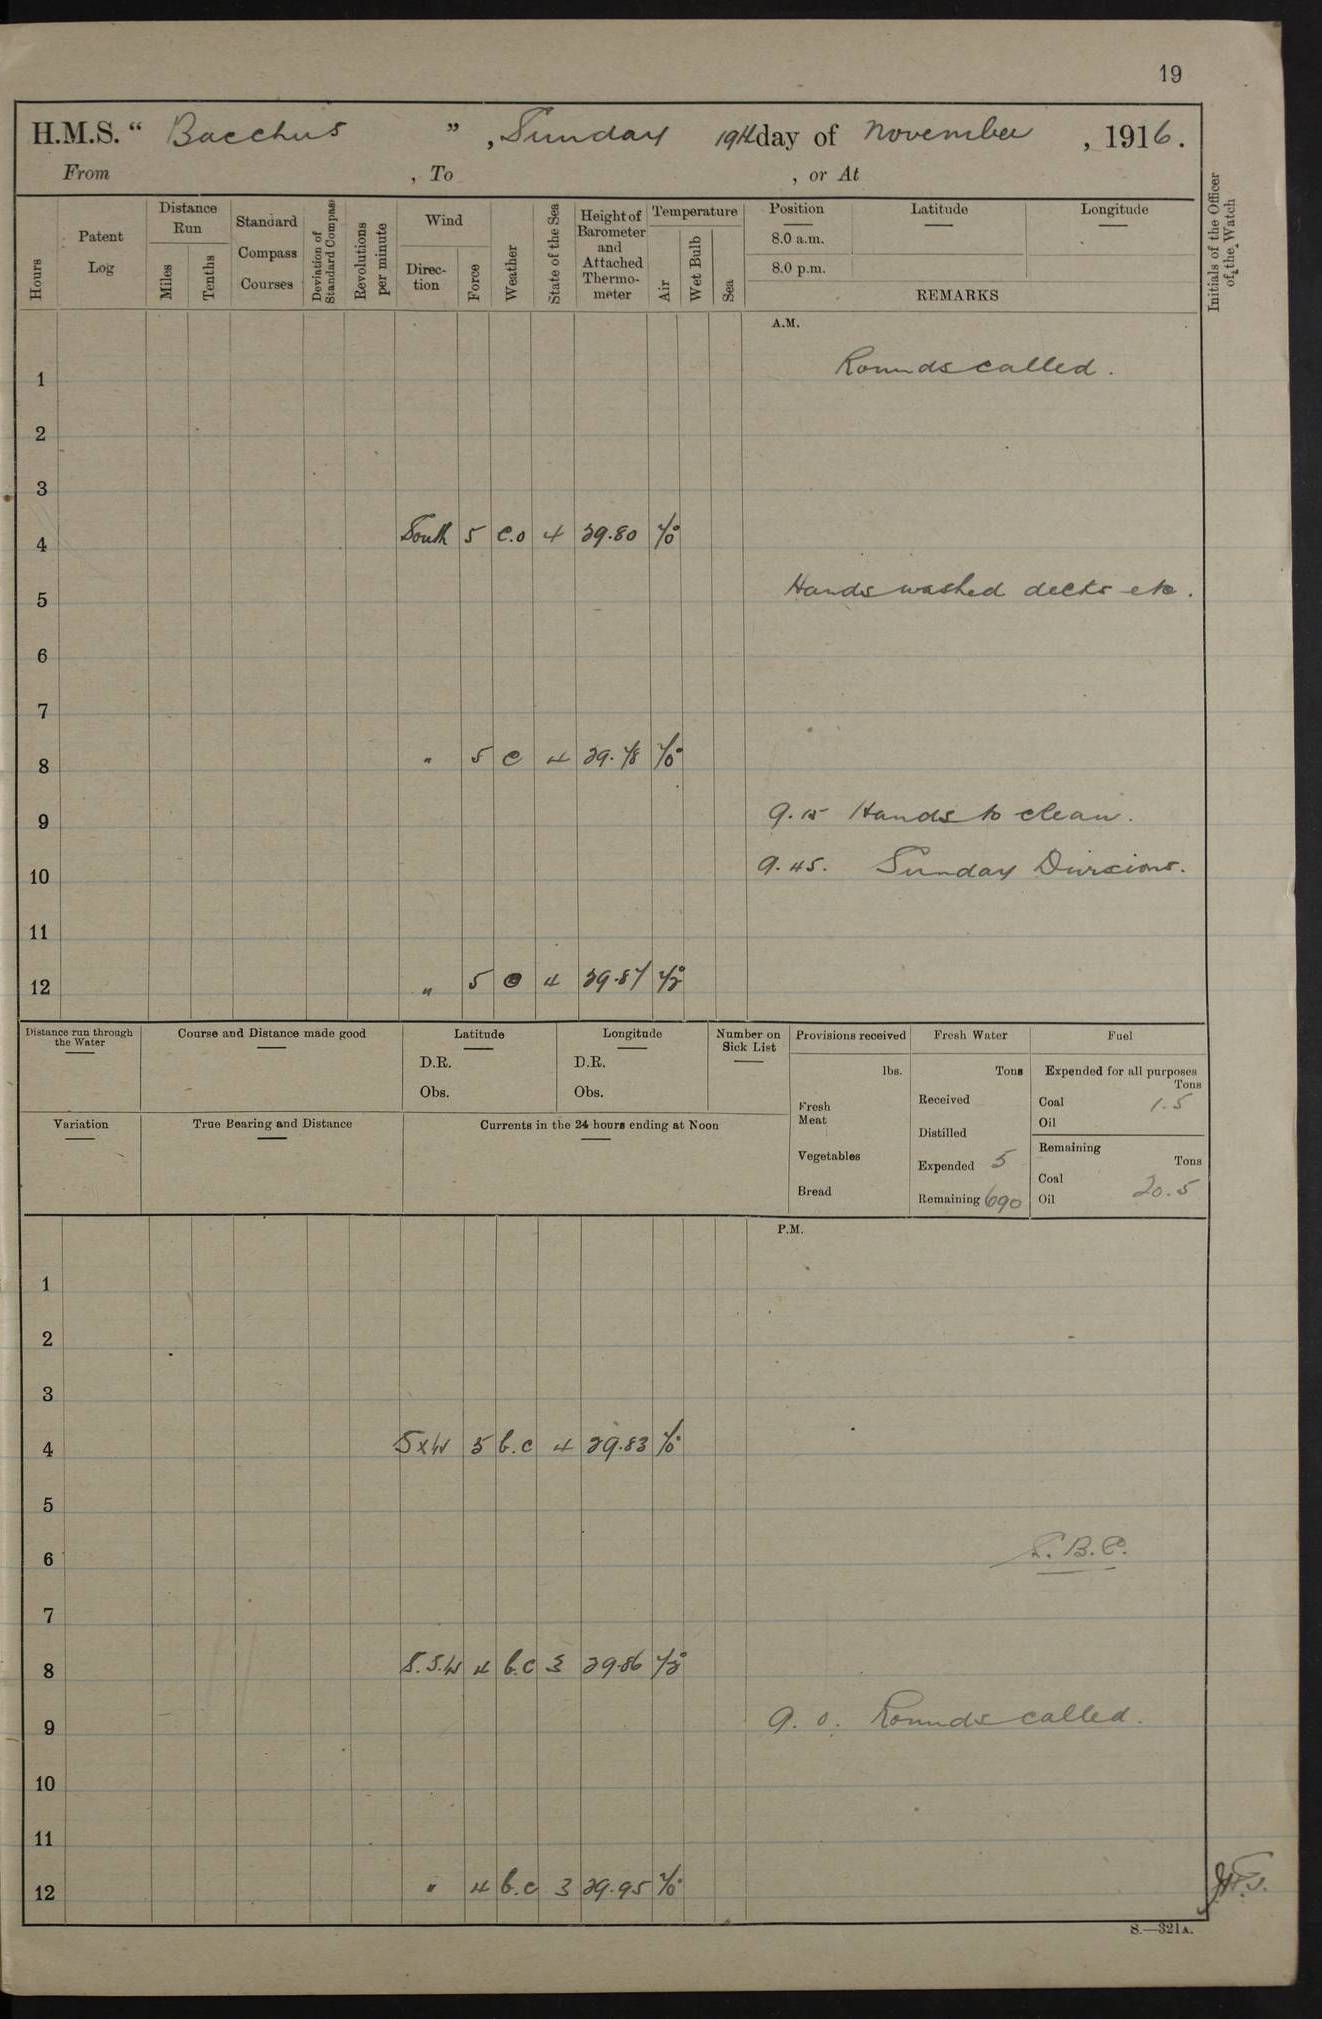 19
H.M.S. “ Bacchus ” , Sunday 19th day of November , 1916.
From , To , or At
Hours
Patent Log
Distance Run
Miles
Tenths
Standard Compass Courses
Deviation of Standard Compass
Revolutions per minute
Wind
Direction
Force
Weather
State of the Sea
Height of Barometer and Attached Thermometer
Temperature
Air
Wet Bulb
Sea
Position Latitude Longitude
8.0 a.m.
8.0 p.m.
REMARKS
Initials of the Officer of the Watch
A.M.
1 Rounds called.
2
3
4 South 5 c.o 4 29.80 70°
5 Hands washed decks etc.
6
7
8 " 5 c 4 29.78 70°
9 9.15 Hands to clean.
10 9.45. Sunday Divisions.
11
12 " 5 4 29.87 72°
Distance run through the Water
Course and Distance made good
Latitude
D.R.
Obs.
Longitude
D.R.
Obs.
Number on Sick List
Provisions received
lbs.
Fresh Meat
Vegetables
Bread
Fresh Water
Tons
Received
Distilled
Expended 5
Remaining 690
Fuel
Expended for all purposes
Tons
Coal 1.5
Oil
Remaining
Tons
Coal 20.5
Oil
Variation
True Bearing and Distance
Currents in the 24 hours ending at Noon
P.M.
1
2
3
4 SxW 5 b.c 4 29.83 70°
5
6
7
8 S.S.W 4 b.c 3 29.86 73°
9 9.0. Rounds called.
10
11
12 " 4 b.c 3 29.95 70°
S.—321A.